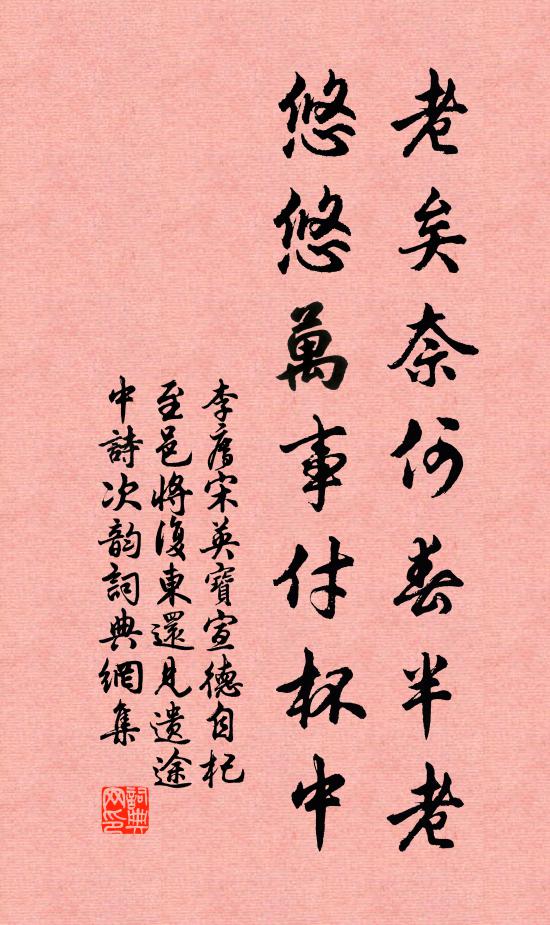 老矣奈何春半老
悠悠萬事付杯中
李廌宋英寶宣德自杞
至邑將復東還見遺途
中詩次韵詞典網集
詞典
网印